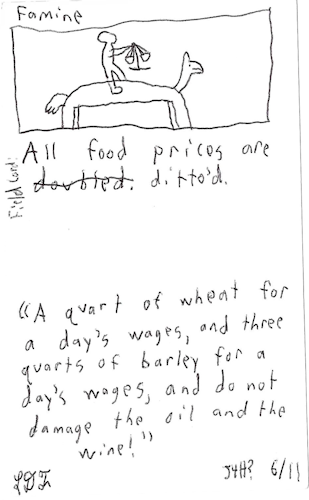 Famine
Field Card:
All food prices are
doubled. ditto'd.
"A quart of wheat for
a day's wages, and three
quarts of barley for a
day's wages, and do not
damage the oil and the
wine!"
J4H? 6/11